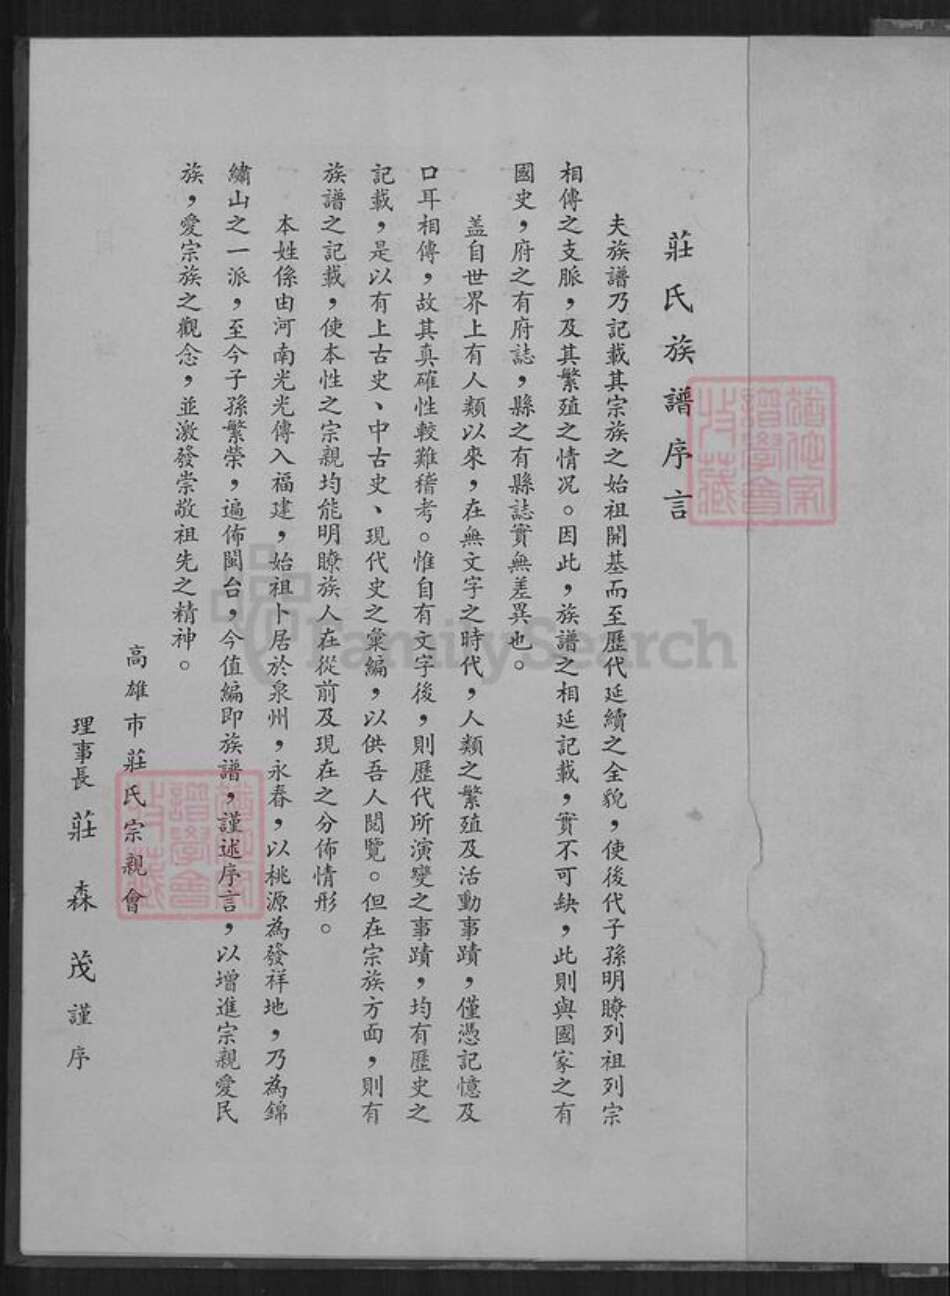 莊氏族譜序言
夫族譜乃記載其宗族之始祖開基而至歷代延續之全貌，使後代子孫明瞭列祖列宗
相傳之支脈，及其繁殖之情况。因此，族譜之相延記載，實不可缺，此則與國家之有
國史，府之有府誌，縣之有縣誌實無差異也。
盖自世界上有人類以來，在無文字之時代，人類之繁殖及活動事蹟，僅憑記憶及
口耳相傳，故其真確性較難稽考。惟自有文字後，則歷代所演變之事蹟，均有歷史之
記載，是以有上古史、中古史、現代史之彙編，以供吾人閱覽。但在宗族方面，則有
族譜之記載，使本性之宗親均能明瞭族人在從前及現在之分佈情形。
本姓係由河南光光傳入福建，始祖卜居於泉州，永春，以桃源為發祥地，乃為錦
繡山之一派，至今子孫繁榮，遍佈閩台，今值編即族譜，謹述序言，以增進宗親愛民
族，愛宗族之觀念，並激發崇敬祖先之精神。
高雄市莊氏宗親會
理事長莊森茂謹序
FamilySearch